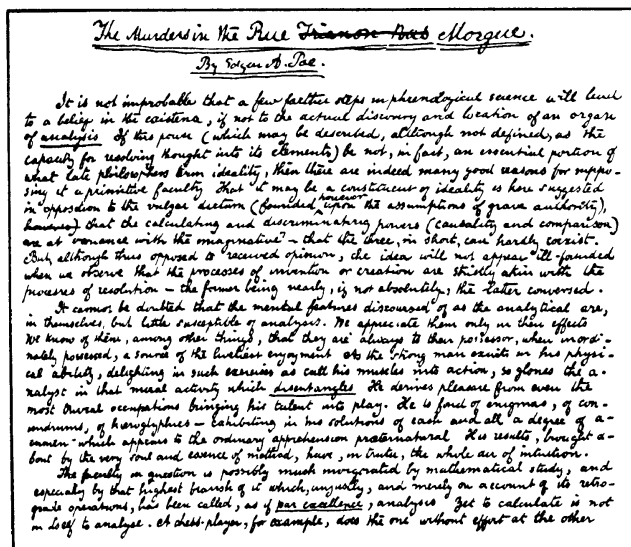 The Murders in the Rue Trianon Bas Morgue.
By Edgar A. Poe.
It is not improbable that a few farther steps in phrenological science will lead
to a belief in the existence, if not to the actual discovery and location of an organ
of analysis. If this power (which may be described, although not defined, as the
capacity for resolving thought into its elements) be not, in fact, an essential portion of
what late philosophers term ideality, then there are indeed many good reasons for suppo-
sing it a primitive faculty. That it may be a constituent of ideality is here suggested
in opposition to the vulgar dictum (founded, however, upon the assumptions of grave authority),
however) that the calculating and discriminating powers (causality and comparison)
are at variance with the imaginative — that the three, in short, can hardly coexist.
But, although thus opposed to received opinion, the idea will not appear ill-founded
when we observe that the processes of invention or creation are strictly akin with the
processes of resolution — the former being nearly, if not absolutely, the latter conversed.
It cannot be doubted that the mental features discoursed of as the analytical are,
in themselves, but little susceptible of analysis. We appreciate them only in their effects
We know of them, among other things, that they are always to their possessor, when inordi-
nately possessed, a source of the liveliest enjoyment. As the strong man exults in his physi-
cal ability, delighting in such exercises as call his muscles into action, so glories the a-
nalyst in that moral activity which disentangles. He derives pleasure from even the
most trivial occupations bringing his talent into play. He is fond of enigmas, of con-
undrums, of hieroglyphics — exhibiting in his solutions of each and all a degree of a-
cumen which appears to the ordinary apprehension præternatural. His results, brought a-
bout by the very soul and essence of method, have, in truth, the whole air of intuition.
The faculty in question is possibly much invigorated by mathematical study, and
especially by that highest branch of it which, unjustly, and merely on account of its retro-
grade operations, has been called, as if par excellence, analysis. Yet to calculate is not
in itself to analyse. A chess-player, for example, does the one without effort at the other